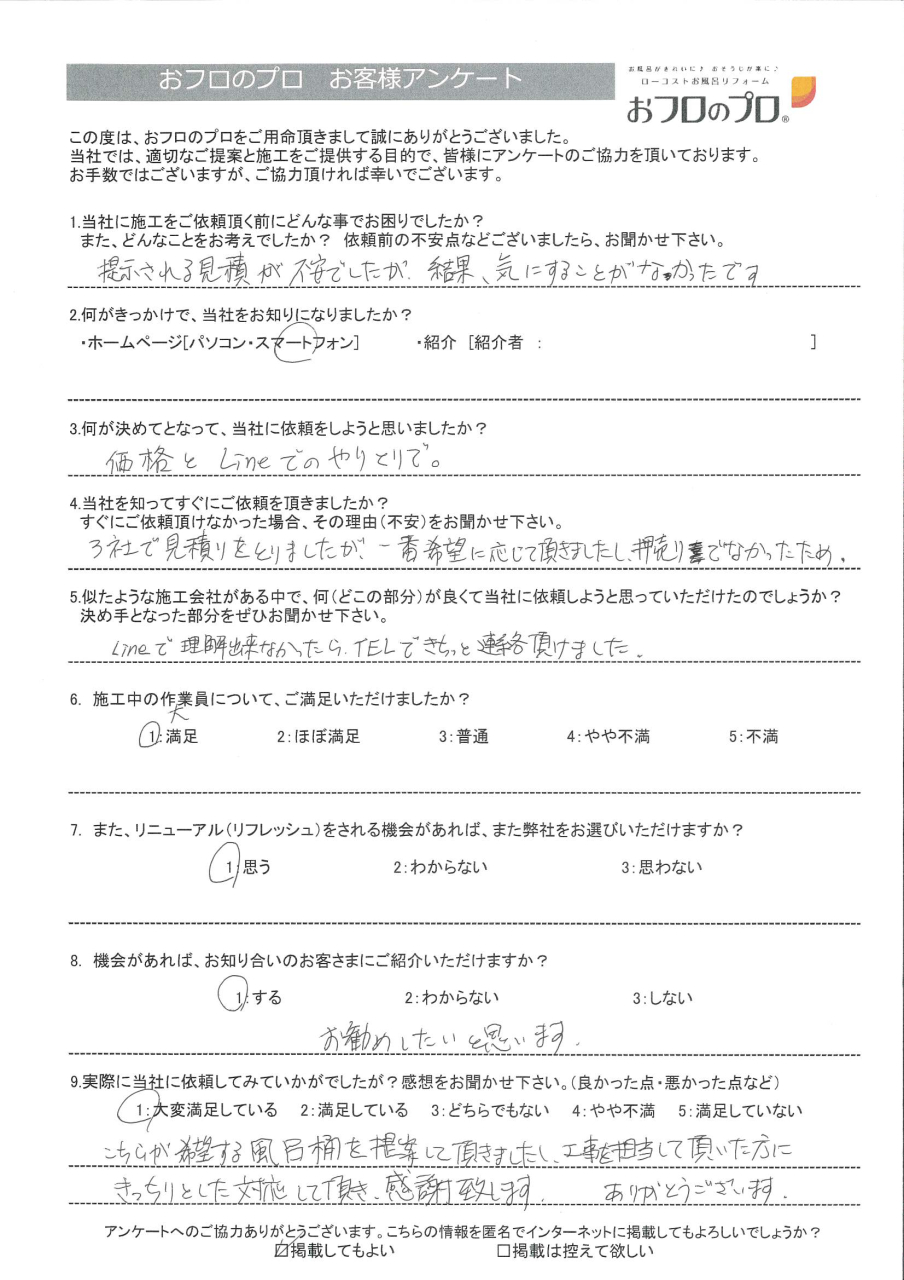 おフロのプロ　お客様アンケート
お風呂がきれいに♪ おそうじが楽に♪
ローコストお風呂リフォーム
おフロのプロ®
この度は、おフロのプロをご用命頂きまして誠にありがとうございました。
当社では、適切なご提案と施工をご提供する目的で、皆様にアンケートのご協力を頂いております。
お手数ではございますが、ご協力頂ければ幸いでございます。
1.当社に施工をご依頼頂く前にどんな事でお困りでしたか？
また、どんなことをお考えでしたか？ 依頼前の不安点などございましたら、お聞かせ下さい。
提示される見積が不安でしたが、結果、気にすることがなかったです
2.何がきっかけで、当社をお知りになりましたか？
・ホームページ[パソコン・スマートフォン]　・紹介 [紹介者 ：　]
3.何が決めてとなって、当社に依頼をしようと思いましたか？
価格と Lineでのやりとりで。
4.当社を知ってすぐにご依頼を頂きましたか？
すぐにご依頼頂けなかった場合、その理由(不安)をお聞かせ下さい。
3社で見積りをとりましたが、一番希望に応じて頂きましたし、押売りでなかったため。
5.似たような施工会社がある中で、何(どこの部分)が良くて当社に依頼しようと思っていただけたのでしょうか？
決め手となった部分をぜひお聞かせ下さい。
Lineで理解出来なかったら、TELできちっと連絡頂けました。
6. 施工中の作業員について、ご満足いただけましたか？
大
1:満足　2:ほぼ満足　3:普通　4:やや不満　5:不満
7. また、リニューアル(リフレッシュ)をされる機会があれば、また弊社をお選びいただけますか？
1:思う　2:わからない　3:思わない
8. 機会があれば、お知り合いのお客さまにご紹介いただけますか？
1:する　2:わからない　3:しない
お勧めしたいと思います。
9.実際に当社に依頼してみていかがでしたか？感想をお聞かせ下さい。(良かった点・悪かった点など)
1:大変満足している　2:満足している　3:どちらでもない　4:やや不満　5:満足していない
こちらが希望する風呂桶を提案して頂きましたし、工事を担当して頂いた方に
きっちりとした対応して頂き、感謝致します。　ありがとうございます。
アンケートへのご協力ありがとうございます。こちらの情報を匿名でインターネットに掲載してもよろしいでしょうか？
☑掲載してもよい　□掲載は控えて欲しい